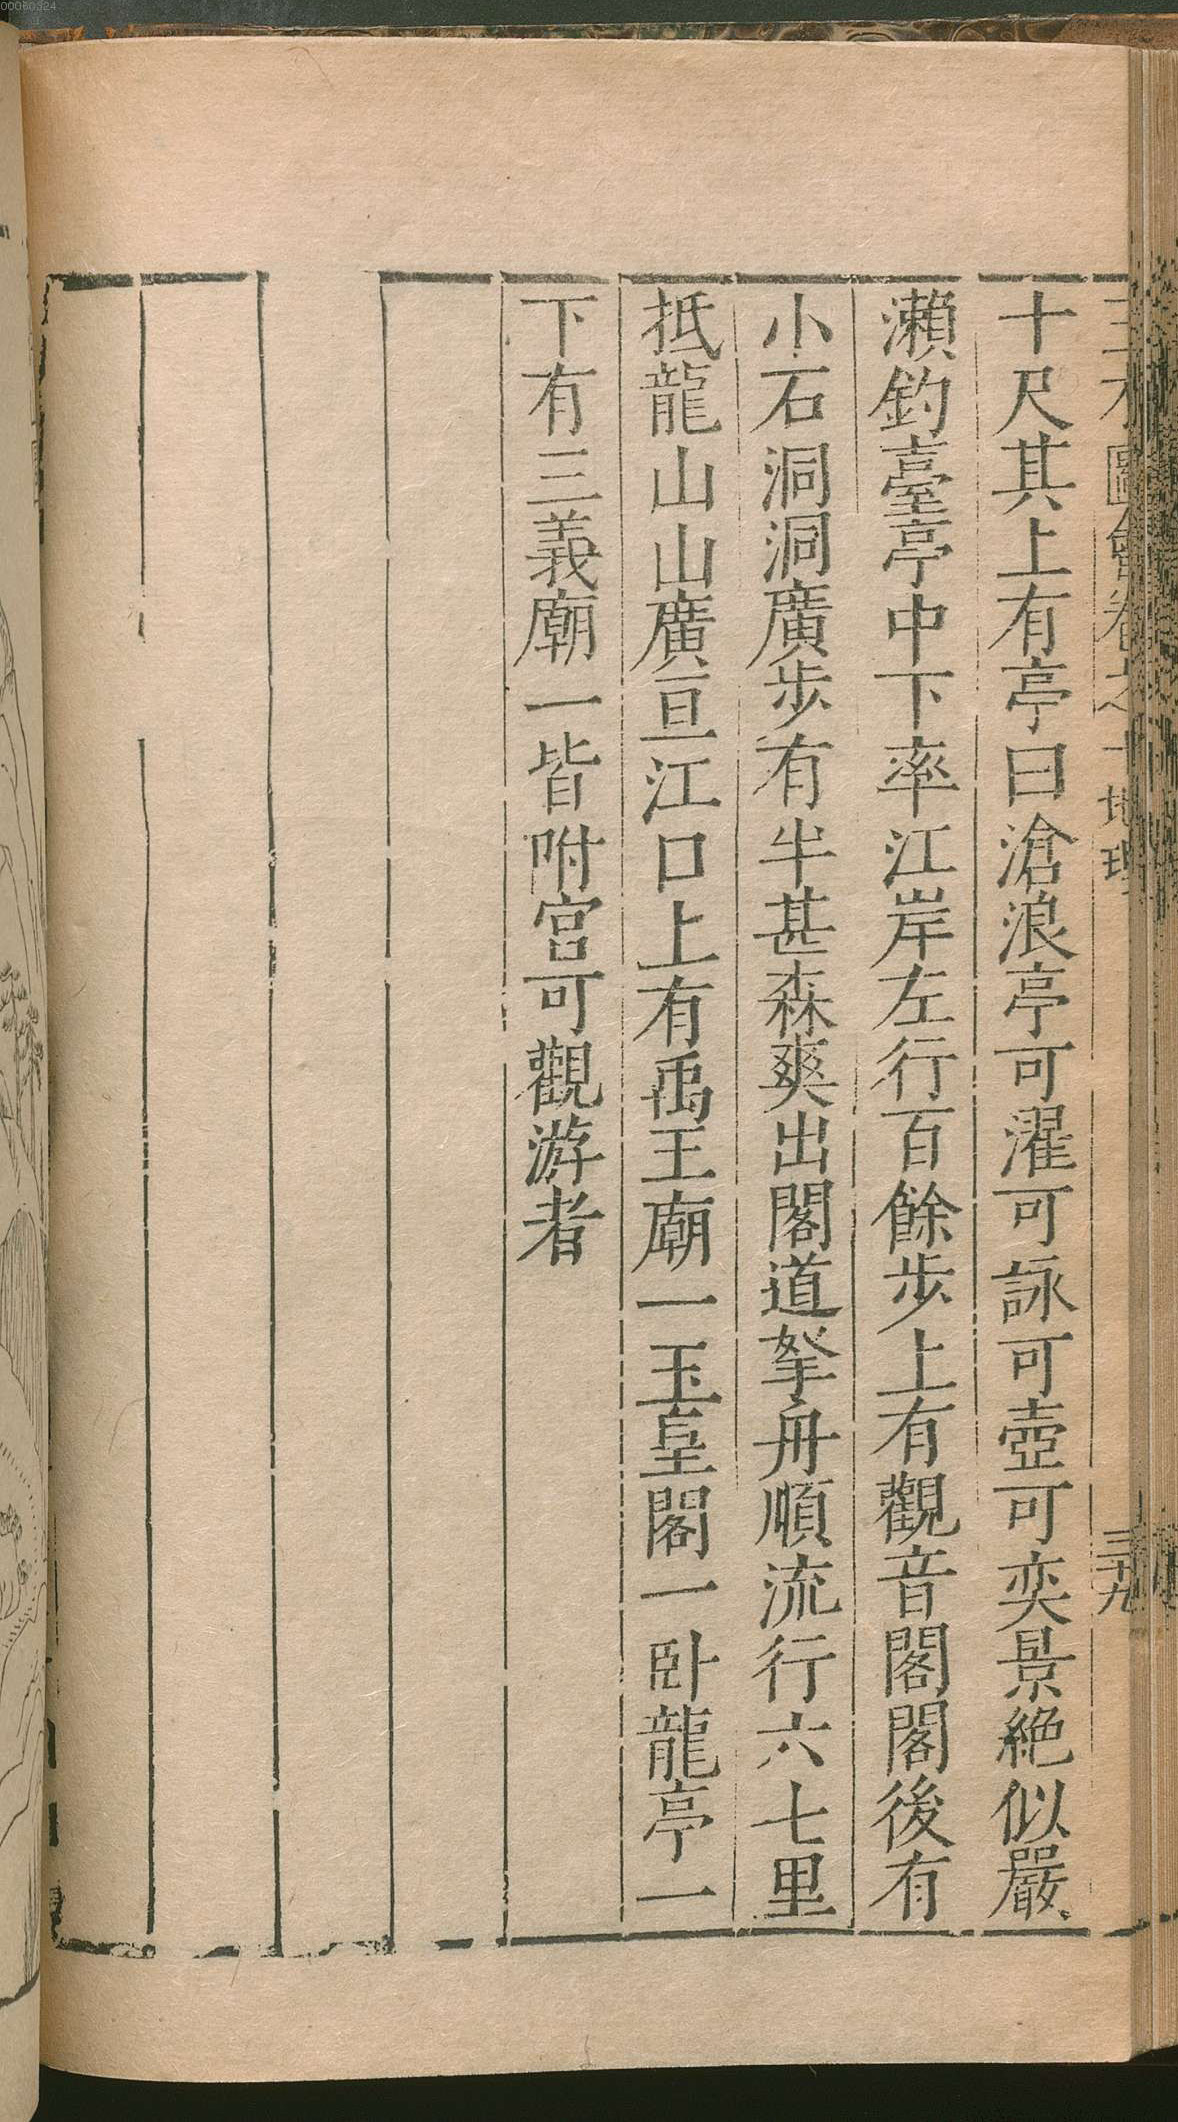 十尺其上有亭曰滄浪亭可濯可詠可壺可奕景絶似嚴
瀨釣臺亭中下率江岸左行百餘步上有觀音閣閣後有
小石洞洞廣步有半甚森爽出閣道拏舟順流行六七里
抵龍山山廣亘江口上有禹王廟一玉皇閣一卧龍亭一
下有三義廟一皆附宮可觀游者
三十九
00060324